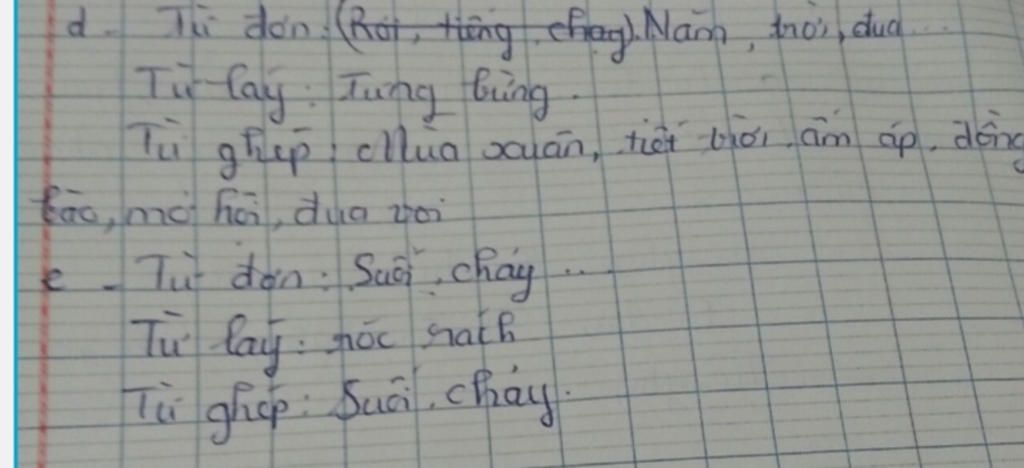 d. Từ đơn: (Rơi, tiếng chạy). Năm, trời, đua...
Từ láy: Tưng bừng.
Từ ghép: Mùa xuân, tiết trời, ấm áp, đồng
bào, mở hội, đua voi
e - Từ đơn: Suối, chảy...
Từ láy: róc rách
Từ ghép: Suối, chảy.